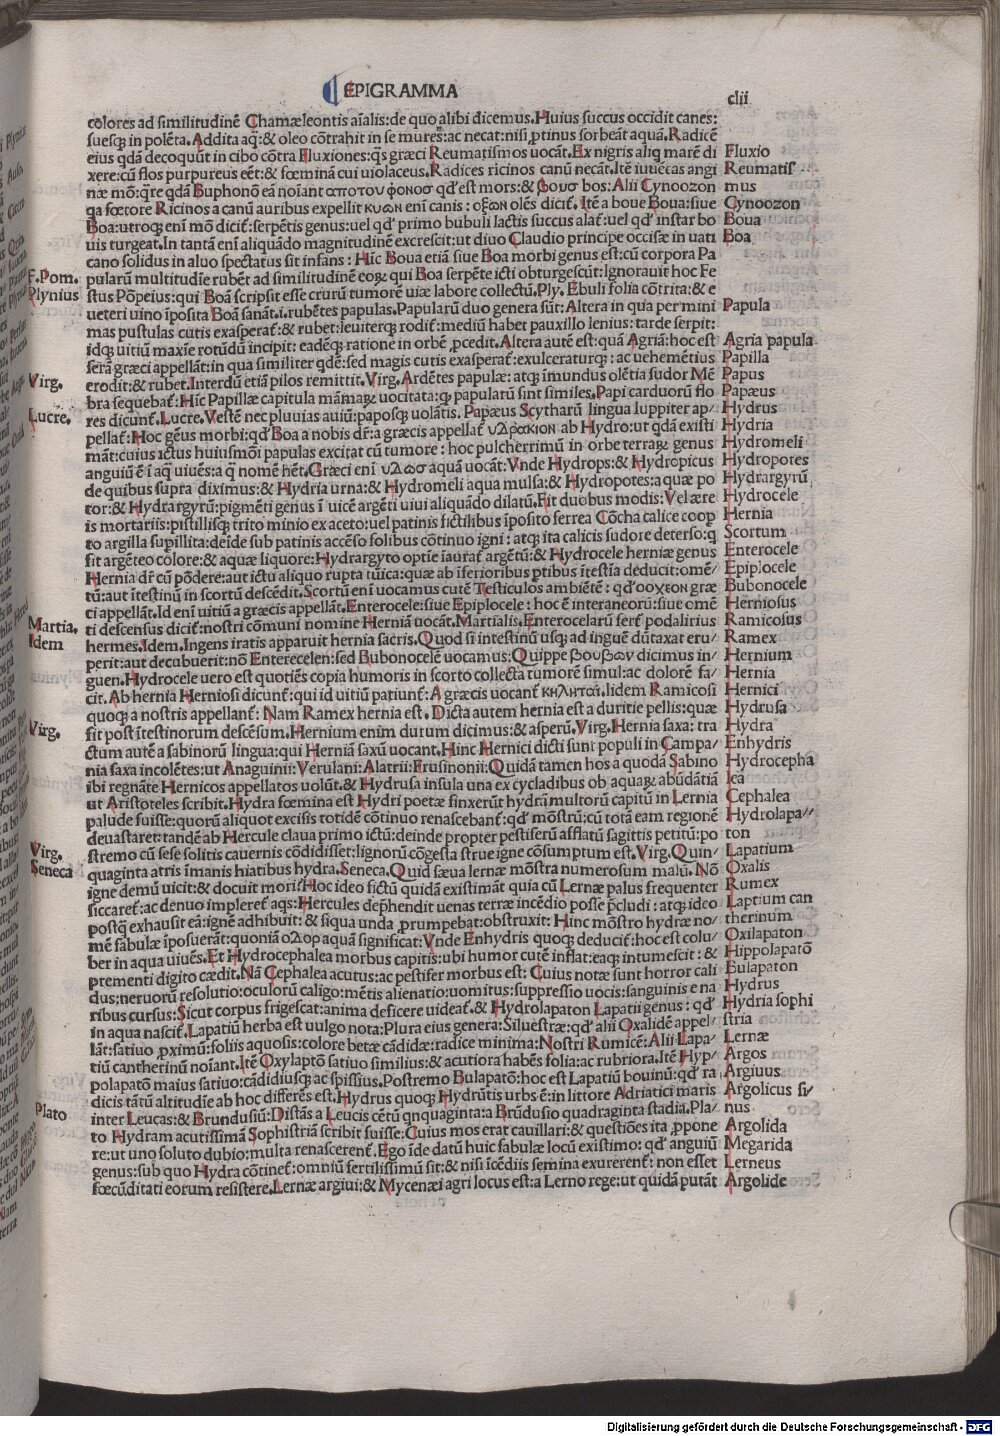 EPIGRAMMA
clii
colores ad similitudinē Chamæleontis aīalis: de quo alibi dicemus. Huius succus occidit canes:
suesq; in polēta. Addita aq̃: & oleo cōtrahit in se mures: ac necat: nisi ꝓtinus sorbeāt aquā. Radicē
eius qdā decoquūt in cibo cōtra Fluxiones: q̃s græci Reumatismos uocāt. Ex nigris aliq marē di
xere: cū flos purpureus eēt: & fœminā cui uiolaceus. Radices ricinos canū necāt. Itē iuuēcas angi
næ mō: q̃re qdā Buphonō eā noīant αποτου φονοσ qd̓ est mors: & βουσ bos: Alii Cynoozon
qa fœtore Ricinos a canū auribus expellit κυων enī canis: οξων olēs dicit̄. Itē a boue Boua: siue
Boa: utroq; enī mō dicit̄: serpētis genus: uel qd̓ primo bubuli lactis succus alat̄: uel qd̓ instar bo
uis turgeat. In tantā enī aliquādo magnitudinē excrescit: ut diuo Claudio principe occisæ in uati
cano solidus in aluo spectatus sit infans: Hic Boua etiā siue Boa morbi genus est: cū corpora Pa
pularū multitudīe rubēt ad similitudinē eoꝝ qui Boa serpēte icti obturgescūt: Ignorauit hoc Fe
stus Pōpeius: qui Boā scripsit esse crurū tumorē uiæ labore collectū. Ply. Ebuli folia cōtrita: & e
ueteri uino īposita Boā sanāt. i. rubētes papulas. Papularū duo genera sūt: Altera in qua per mini
mas pustulas cutis exasperat̄: & rubet: leuiterq; rodit̄: mediū habet pauxillo lenius: tarde serpit:
idq; uitiū maxīe rotūdū incipit: eadēq; ratione in orbē ꝓcedit. Altera autē est: quā Agriā: hoc est
serā græci appellāt: in qua similiter qdē: sed magis cutis exasperat̄: exulceraturq;: ac uehemētius
erodit̄: & rubet. Interdū etiā pilos remittit. Virg. Ardētes papulæ: atq; īmundus olētia sudor Mē
bra sequebat̄: Hic Papillæ capitula māmaꝝ uocitata: q papularū sint similes. Papi carduorū flo
res dicunt̄. Lucre. Vestē nec pluuias auiū: paposq; uolātis. Papæus Scytharū lingua Iuppiter ap/
pellat̄: Hoc gēus morbi: qd̓ Boa a nobis dr̄: a græcis appellat̄ υδροκιον ab Hydro: ut qdā existi
māt: cuius ictus huiusmōi papulas excitat cū tumore: hoc pulcherrimū in orbe terraꝝ genus
anguiū ē ī aq̄ uiuēs: a q̄ nomē hēt. Græci enī υδωσ aquā uocāt: Vnde Hydrops: & Hydropicus
de quibus supra diximus: & Hydria urna: & Hydromeli aqua mulsa: & Hydropotes: aquæ po
tor: & Hydrargyrū: pigmēti genus ī uicē argēti uiui aliquādo dilatū. Fit duobus modis: Vel ære
is mortariis: pistillisq; trito minio ex aceto: uel patinis fictilibus īposito ferrea Cōcha calice coop
to argilla supillita: deīde sub patinis accēso folibus cōtinuo igni: atq; ita calicis sudore deterso: q
sit argēteo colore: & aquæ liquore: Hydrargyto optīe iaurat̄ argētū: & Hydrocele herniæ genus
Hernia dr̄ cū pōdere: aut ictu aliquo rupta tuīca: quæ ab īferioribus ptibus ītestīa deducit: omē/
tū: aut ītestinū in scortū descēdit. Scortū enī uocamus cutē Testiculos ambiētē: qd̓ οσχεον græ
ci appellāt. Id enī uitiū a græcis appellāt. Enterocele: siue Epiplocele: hoc ē interaneorū: siue omē
ti descensus dicit̄: nostri cōmuni nomine Herniā uocāt. Martialis. Enterocelarū fert̄ podalirius
hermes. Idem. Ingens iratis apparuit hernia sacris. Quod si intestinū usq; ad inguē dūtaxat eru/
perit: aut decubuerit: nō Enterecelen: sed Bubonocelē uocamus: Quippe βουβων dicimus in/
guen. Hydrocele uero est quotiēs copia humoris in scorto collecta tumorē simul: ac dolorē fa/
cit. Ab hernia Herniosi dicunt̄: qui id uitiū patiunt̄: A græcis uocant̄ κηλητσι. Iidem Ramicosi
quoq; a nostris appellant̄: Nam Ramex hernia est. Dicta autem hernia est a duritie pellis: quæ
sit post ītestinorum descēsum. Hernium enim durum dicimus: & asperū. Virg. Hernia saxa: tra
ctum autē a sabinorū lingua: qui Herniā saxū uocant. Hinc Hernici dicti sunt populi in Campa/
nia saxa incolētes: ut Anaguinii: Verulani: Alatrii: Frusinonii: Quidā tamen hos a quodā Sabino
ibi regnāte Hernicos appellatos uolūt. & Hydrusa insula una ex cycladibus ob aquaꝝ abūdātiā
ut Aristoteles scribit. Hydra fœmina est Hydri poetæ finxerūt hydrā multorū capitū in Lernia
palude fuisse: quorū aliquot excisis totidē cōtinuo renascebant̄: qd̓ mōstrū: cū totā eam regionē
deuastaret: tandē ab Hercule claua primo ictū: deinde propter pestiferū afflatū sagittis petitū: po
stremo cū sese solitis cauernis cōdidisset: lignorū cōgesta strue igne cōsumptum est. Virg. Quin/
quaginta atris īmanis hiatibus hydra. Seneca. Quid sæua lernæ mōstra numerosum malū. Nō
igne demū uicit: & docuit mori? Hoc ideo fictū quidā existimāt quia cū Lernæ palus frequenter
siccaret̄: ac denuo impleret̄ aqs: Hercules dep̄hendit uenas terræ incēdio posse p̄cludi: atq; ideo
postq̄ exhausit eā: ignē adhibuit: & siqua unda ꝓrumpebat: obstruxit: Hinc mōstro hydræ no/
mē fabulæ īposuerāt: quoniā οδορ aquā significat: Vnde Enhydris quoq; deducit̄: hoc est colu/
ber in aqua uiuēs. Et Hydrocephalea morbus capitis: ubi humor cutē inflat: eaq; intumescit: &
prementi digito cædit. Nā Cephalea acutus: ac pestifer morbus est: Cuius notæ sunt horror cali
dus: neruorū resolutio: oculorū caligo: mētis alienatio: uomitus: suppressio uocis: sanguinis e na
ribus cursus: Sicut corpus frigescat: anima deficere uideat̄. & Hydrolapaton Lapatii genus: qd̓
in aqua nascit̄. Lapatiū herba est uulgo nota: Plura eius genera: Siluestræ: qd̓ alii Oxalidē appel/
lāt: satiuo ꝓximū: foliis aquosis: colore betæ cādidæ: radice minima: Nostri Rumicē: Alii Lapa/
tiū cantherinū noīant. Itē Oxylaptō satiuo similius: & acutiora habēs folia: ac rubriora. Itē Hyp/
polapatō maius satiuo: cādidiusq; ac spissius. Postremo Bulapatō: hoc est Lapatiū bouinū: qd̓ ra
dicis tātū altitudīe ab hoc differēs est. Hydrus quoq; Hydrūtis urbs ē: in littore Adriatici maris
inter Leucas: & Brundusiū: Distās a Leucis cētū qnquaginta: a Brūdusio quadraginta stadia. Pla/
to Hydram acutissimā Sophistriā scribit fuisse: Cuius mos erat cauillari: & questiōes ita ꝓpone
re: ut uno soluto dubio: multa renascerent̄. Ego īde datū huic fabulæ locū existimo: qd̓ anguiū
genus: sub quo Hydra cōtinet̄: omniū fertilissimū sit: & nisi īcēdiis semina exurerent̄: non esset
fœcūditati eorum resistere. Lernæ argiui: & Mycenæi agri locus est: a Lerno rege: ut quidā putāt
Fluxio
Reumatis
mus
Cynoozon
Boua
Boa
Papula
Agria papula
Papilla
Papus
Papæus
Hydrus
Hydria
Hydromeli
Hydropotes
Hydrargyrū
Hydrocele
Hernia
Scortum
Enterocele
Epiplocele
Bubonocele
Herniosus
Ramicosus
Ramex
Hernium
Hernia
Hernici
Hydrusa
Hydra
Enhydris
Hydrocepha
lea
Cephalea
Hydrolapa//
ton
Lapatium
Oxalis
Rumex
Laptium can
therinum
Oxilapaton
Hippolapatō
Bulapaton
Hydrus
Hydria sophi
stria
Lernæ
Argos
Argiuus
Argolicus si/
nus
Argolida
Megarida
Lerneus
Argolide
F. Pom.
Plynius
Virg.
Lucre.
Martia.
Idem
Virg.
Virg.
Seneca
Plato
Digitalisierung gefördert durch die Deutsche Forschungsgemeinschaft - DFG